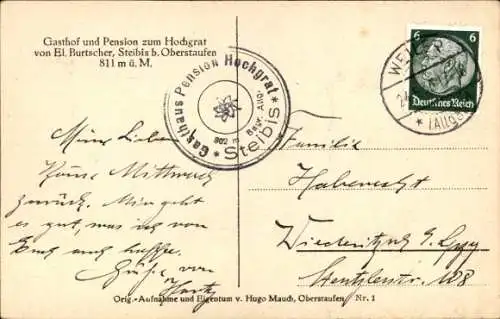 Gasthof und Pension zum Hochgrat
von El. Burtscher, Steibis b. Oberstaufen
811 m ü. M.
Gasthaus Pension Hochgrat
Bayr. Allg.
* Steibis *
6 6
Deutsches Reich
Meine Lieben
Mittwoch
zurück. Mir geht
es gut, was ich von
Euch auch hoffe.
Grüße von
Familie
Haberecht
Wiederitzsch b. Lpzg
108
Orig.-Aufnahme und Eigentum v. Hugo Mauch, Oberstaufen. Nr. 1